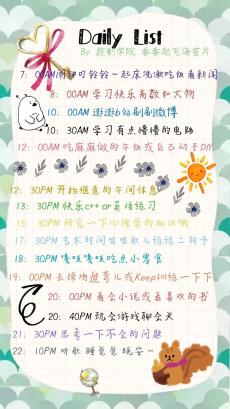 Daily List
By 控制学院 香香起司海苔片
7：00AM 闹钟叮铃铃~起床洗漱吃饭看新闻
8：00AM 学习快乐高数和大物
10：00AM 逛逛b站刷刷微博
10：30AM 学习有点懵懵的电路
12：00AM 吃麻麻做的午饭或自己动手DIY
12：30PM 开始惬意的午间休息
13：30PM 快乐c++or英语练习
15：30PM 研究一下心理学的知识哦
17：30PM 艺术时间唱唱歌儿练练二胡子
18：30PM 嗷呜嗷呜吃点小零食
19：00PM 去操场遛弯儿或Keep训练一下下
20：00PM 看会小说或者喜欢的书
20：40PM 玩会游戏聊会天
21：30PM 思考一下不会的问题
22：10PM 听歌 睡觉觉 晚安~